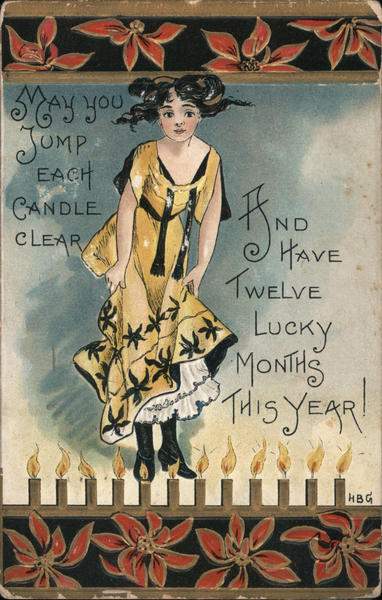 May you
Jump
each
Candle
clear
And
Have
Twelve
Lucky
Months
This Year!
HBG